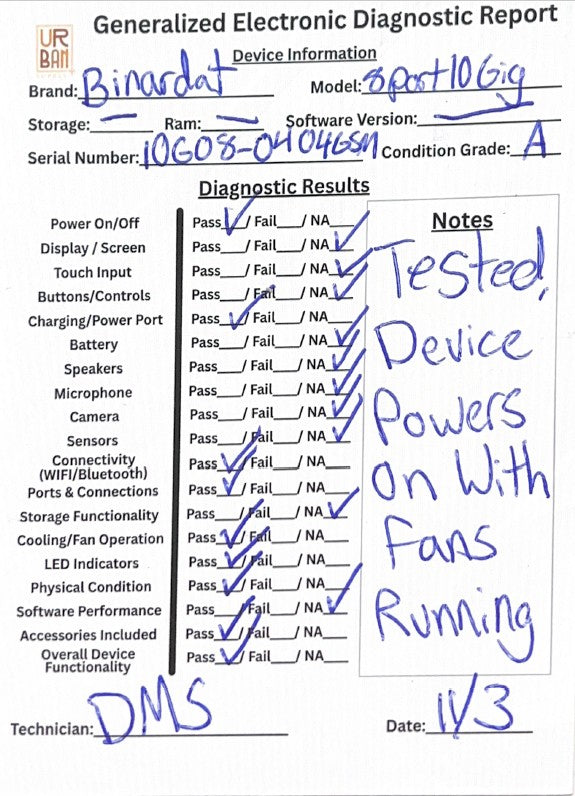 URBAN
Generalized Electronic Diagnostic Report
Device Information
Brand: Binardat Model: 8 Port 10 Gig
Storage: — Ram: — Software Version: —
Serial Number: 10G08-0404GSM Condition Grade: A
Diagnostic Results
Power On/Off Pass ✓ / Fail___/ NA___
Display / Screen Pass___/ Fail___/ NA ✓
Touch Input Pass___/ Fail___/ NA ✓
Buttons/Controls Pass___/ Fail___/ NA ✓
Charging/Power Port Pass ✓ / Fail___/ NA___
Battery Pass___/ Fail___/ NA ✓
Speakers Pass___/ Fail___/ NA ✓
Microphone Pass___/ Fail___/ NA ✓
Camera Pass___/ Fail___/ NA ✓
Sensors Pass___/ Fail___/ NA ✓
Connectivity
(WIFI/Bluetooth) Pass ✓ / Fail___/ NA___
Ports & Connections Pass ✓ / Fail___/ NA___
Storage Functionality Pass___/ Fail___/ NA ✓
Cooling/Fan Operation Pass ✓ / Fail___/ NA___
LED Indicators Pass ✓ / Fail___/ NA___
Physical Condition Pass ✓ / Fail___/ NA___
Software Performance Pass___/ Fail___/ NA ✓
Accessories Included Pass ✓ / Fail___/ NA___
Overall Device
Functionality Pass ✓ / Fail___/ NA___
Notes
Tested,
Device
Powers
On With
Fans
Running
Technician: DMS Date: 11/3